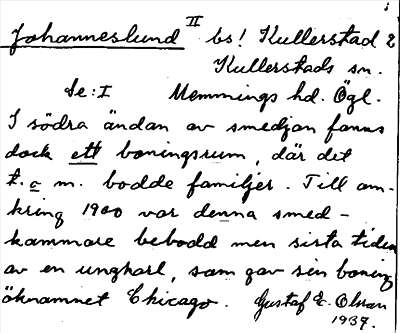 Johanneslund II bs! Kullerstad 2
Kullerstads sn.
Se: I Memmings hd. Ögl.
I södra ändan av smedjan fanns
dock ett boningsrum, där det
t. o m. bodde familjer. Till om-
kring 1900 var denna smed-
kammare bebodd men sista tiden
av en ungkarl, som gav sin boning
öknamnet Chicago. Gustaf E. Olsson
1937.